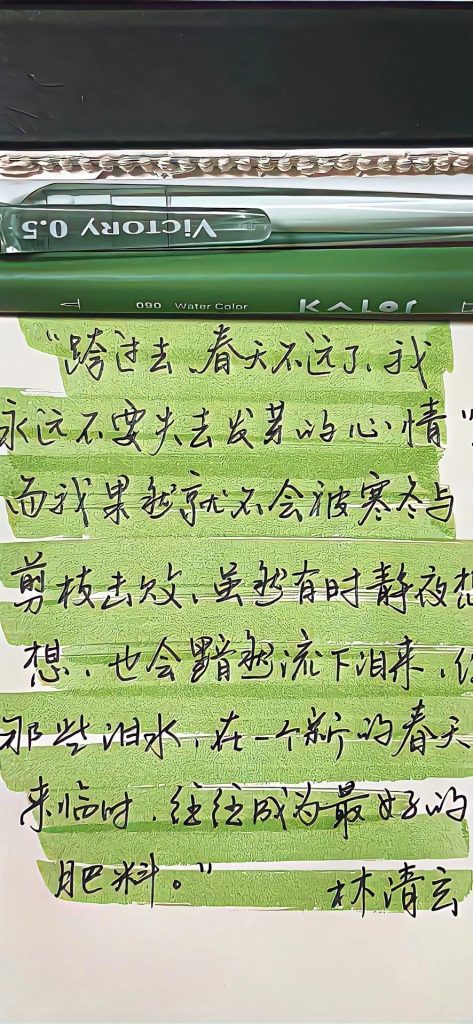 VICTORY 0.5
090 Water Color KALOR
"跨过去、春天不远了、我
永远不要失去发芽的心情"
而我果然就不会被寒冬与
剪枝击败、虽然有时静夜想
想、也会黯然流下泪来、但
那些泪水、在一个新的春天
来临时、往往成为最好的
肥料。"
林清玄